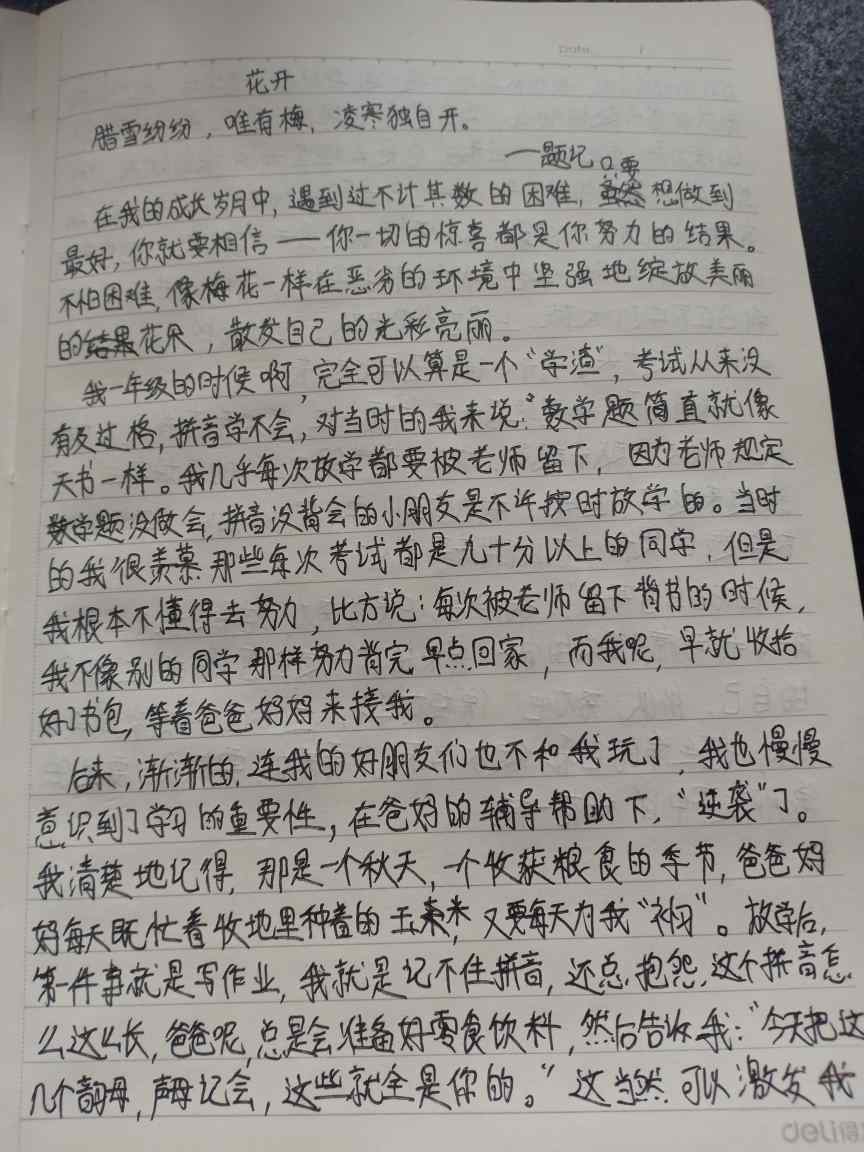 Date /
花开
腊雪纷纷，唯有梅，凌寒独自开。
——题记
只要
在我的成长岁月中，遇到过不计其数的困难，虽然想做到
最好，你就要相信——你一切的惊喜都是你努力的结果。
不怕困难，像梅花一样在恶劣的环境中坚强地绽放美丽
的结果花朵，散发自己的光彩亮丽。
我一年级的时候啊，完全可以算是一个“学渣”，考试从来没
有及过格，拼音学不会，对当时的我来说：“数学题简直就像
天书一样。我几乎每次放学都要被老师留下，因为老师规定
数学题没做会，拼音没背会的小朋友是不许按时放学的。当时
的我很羡慕那些每次考试都是九十分以上的同学，但是
我根本不懂得去努力，比方说：每次被老师留下背书的时候，
我不像别的同学那样努力背完早点回家，而我呢，早就收拾
好了书包，等着爸爸妈妈来接我。
后来，渐渐的，连我的好朋友们也不和我玩了，我也慢慢
意识到了学习的重要性，在爸妈的辅导帮助下，“逆袭”了。
我清楚地记得，那是一个秋天，一个收获粮食的季节，爸爸妈
妈每天既忙着收地里种着的玉米，又要每天为我“补习”。放学后，
第一件事就是写作业，我就是记不住拼音，还总抱怨，这个拼音怎
么这么长，爸爸呢，总是会准备好零食饮料，然后告诉我：“今天把这
几个韵母，声母记会，这些就全是你的。”这当然可以激发我
deli得